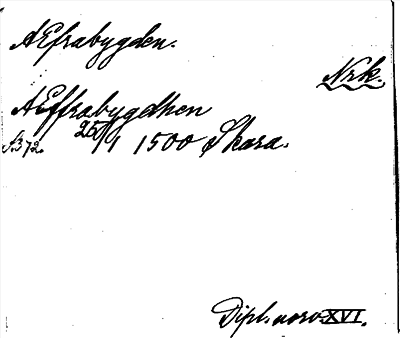 AEfrabygden.
Nrk.
AEffrabygdhen
s. 372. 25/1 1500 Skara.
Dipl. norv. XVI.